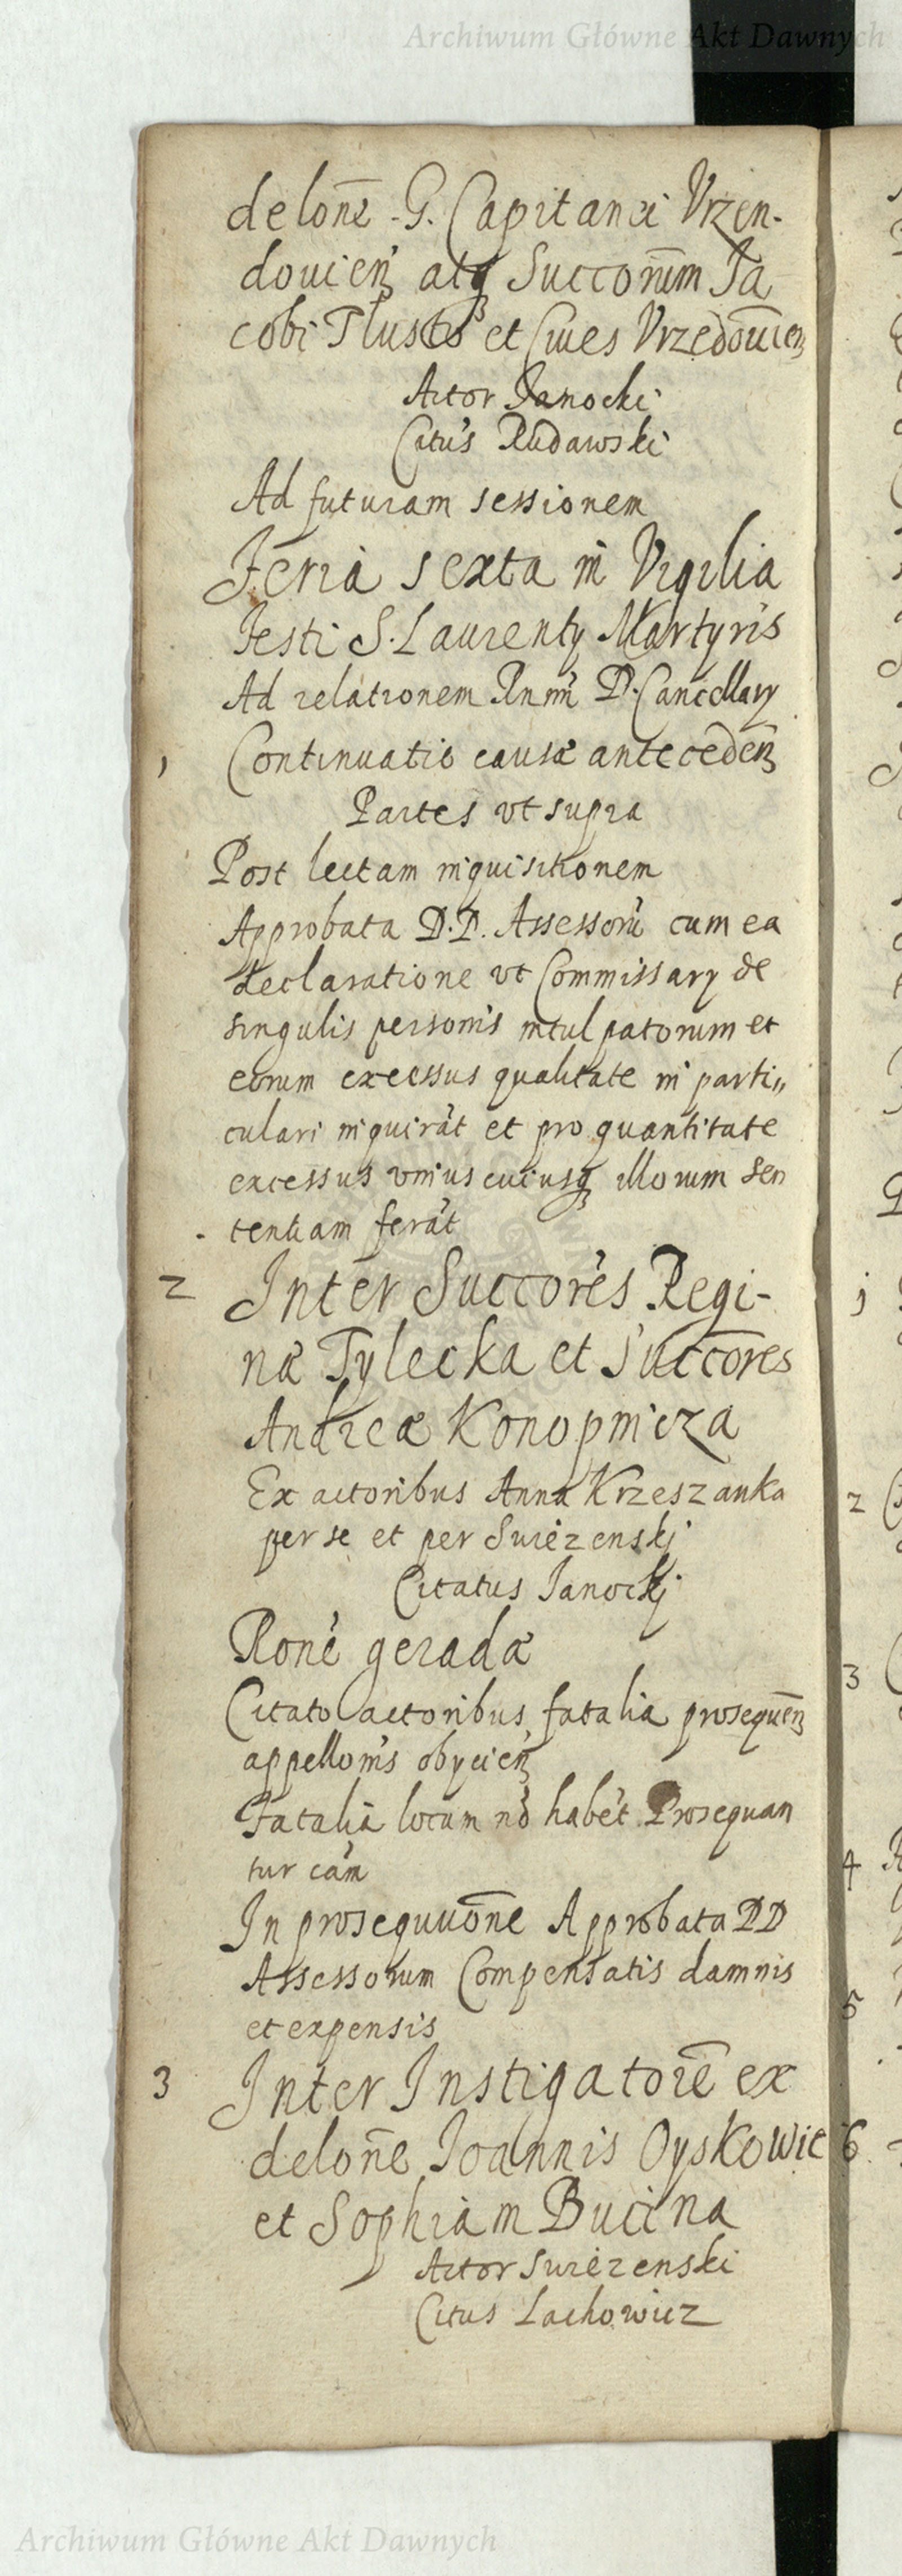 Archiwum Główne Akt Dawnych
delon̄e G. Capitanei Vrzen-
douicen̄ atq Succorum̄ Ja
cobi Tlusto et Ciues Vrzedouien̄
Actor Janocki
Citus Rudawski
Ad futuram sessionem
Feria sexta in Vigilia
Festi S. Laurenty Martyris
Ad relationem Rnmi D. Cancellary
1 Continuatio causæ anteceden̄
Partes vt supra
Post lectam inquisitionem
Approbata D.D. Assessorū cum ea
declaratione vt Commissary de
singulis personis inculpatorum et
eorum excessus qualitate in parti„
culari inquirāt et pro quantitate
excessus vnius cuiusq illorum sen
tentiam ferāt
2 Inter Succores Regi-
næ Tylecka et Succores
Andreæ Konopnicza
Ex actoribus Anna Krzeszanka
per se et per Swiezenskj
Citatus Janockj
Rone geradæ
Citato actoribus fatalia prosequen̄
appellonis obycien̄
Fatalia locum nō habēt Prosequan
tur cām
In prosequuōne Approbata DD
Assessorum Compensatis damnis
et expensis
3 Inter Instigatorē ex
delon̄e Joannis Oyskowic
et Sophiam Bucina
Actor Swiezenski
Citus Lachowicz
j
2
3
4
5
6
Archiwum Główne Akt Dawnych